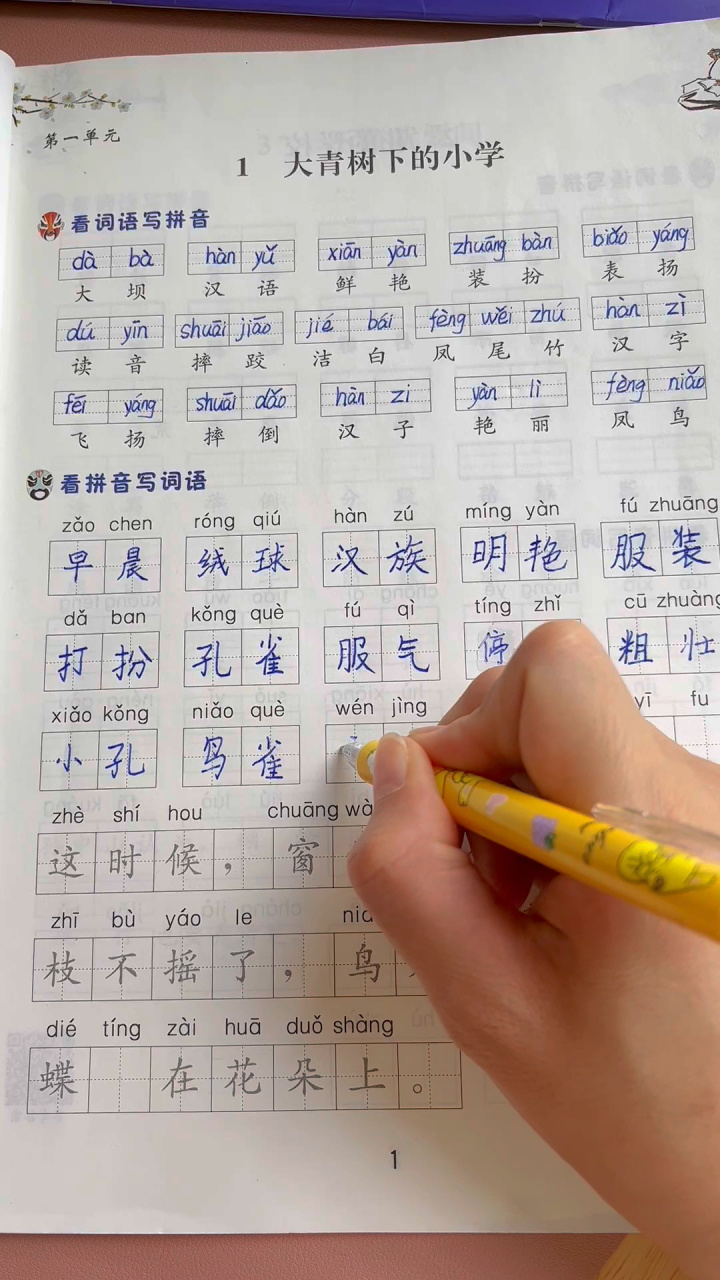 第一单元
1 大青树下的小学
看词语写拼音
dà bà hàn yǔ xiān yàn zhuāng bàn biǎo yáng
大坝 汉语 鲜艳 装扮 表扬
dú yīn shuāi jiāo jié bái fèng wěi zhú hàn zì
读音 摔跤 洁白 凤尾竹 汉字
fēi yáng shuāi dǎo hàn zi yàn lì fèng niǎo
飞扬 摔倒 汉子 艳丽 凤鸟
看拼音写词语
zǎo chen róng qiú hàn zú míng yàn fú zhuāng
早晨 绒球 汉族 明艳 服装
dǎ ban kǒng què fú qì tíng zhǐ cū zhuàng
打扮 孔雀 服气 停 粗壮
xiǎo kǒng niǎo què wén jìng yī fu
小孔 鸟雀
zhè shí hou chuāng wà
这时候，窗
zhī bù yáo le
枝不摇了，鸟
dié tíng zài huā duǒ shàng
蝶 在花朵上。
1